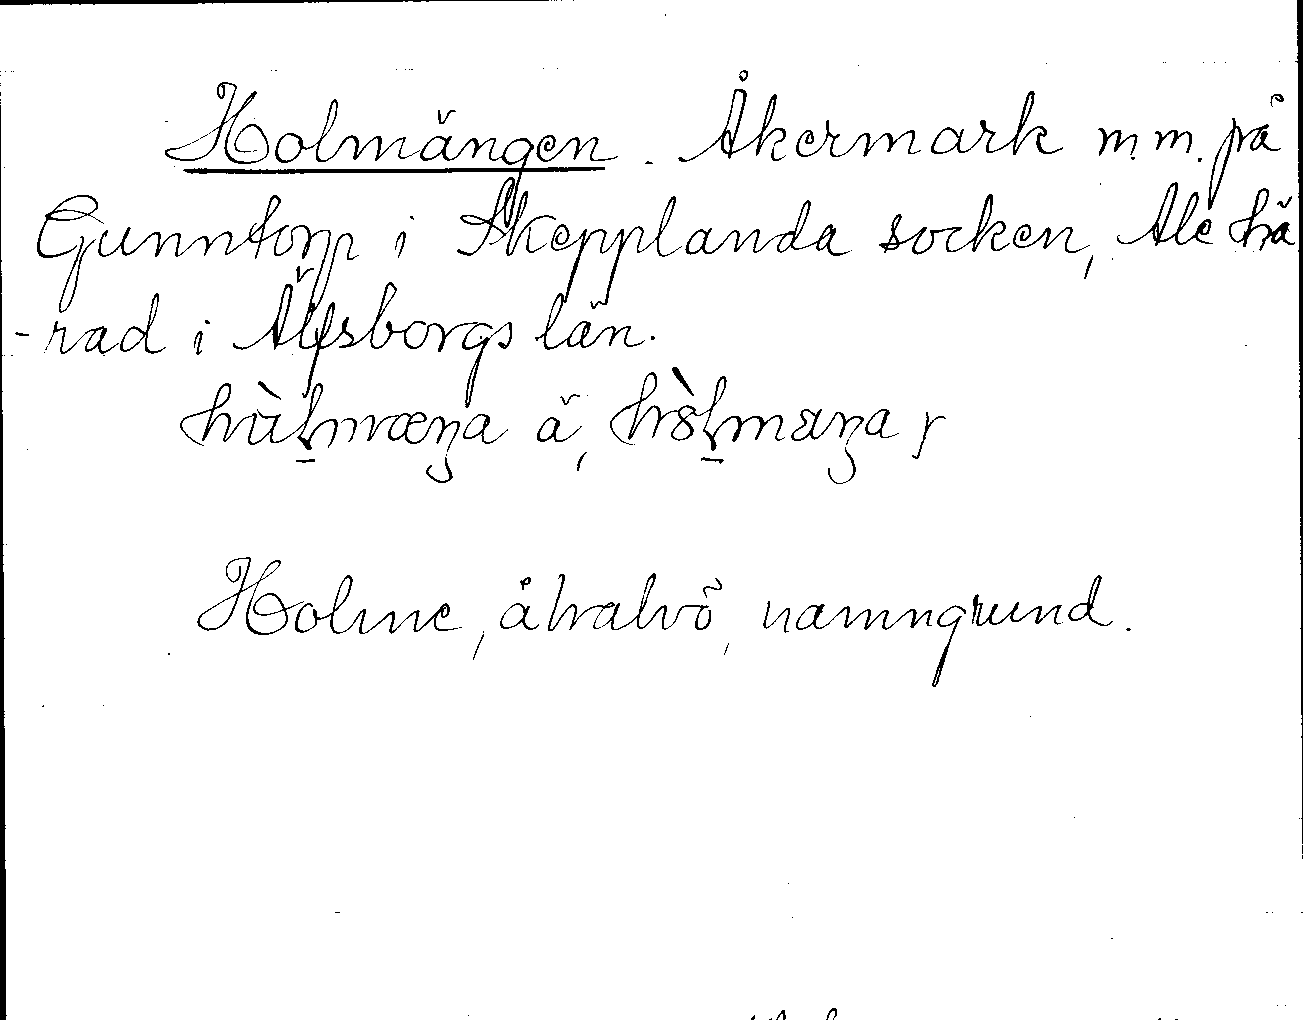 Holmängen. Åkermark m.m. på
Gunntorp i Skepplanda socken, Ale hä
-rad i Älfsborgs län.
hùl̠mæŋa ä, hòl̠mæŋar
Holme, åhalvö, namngrund.